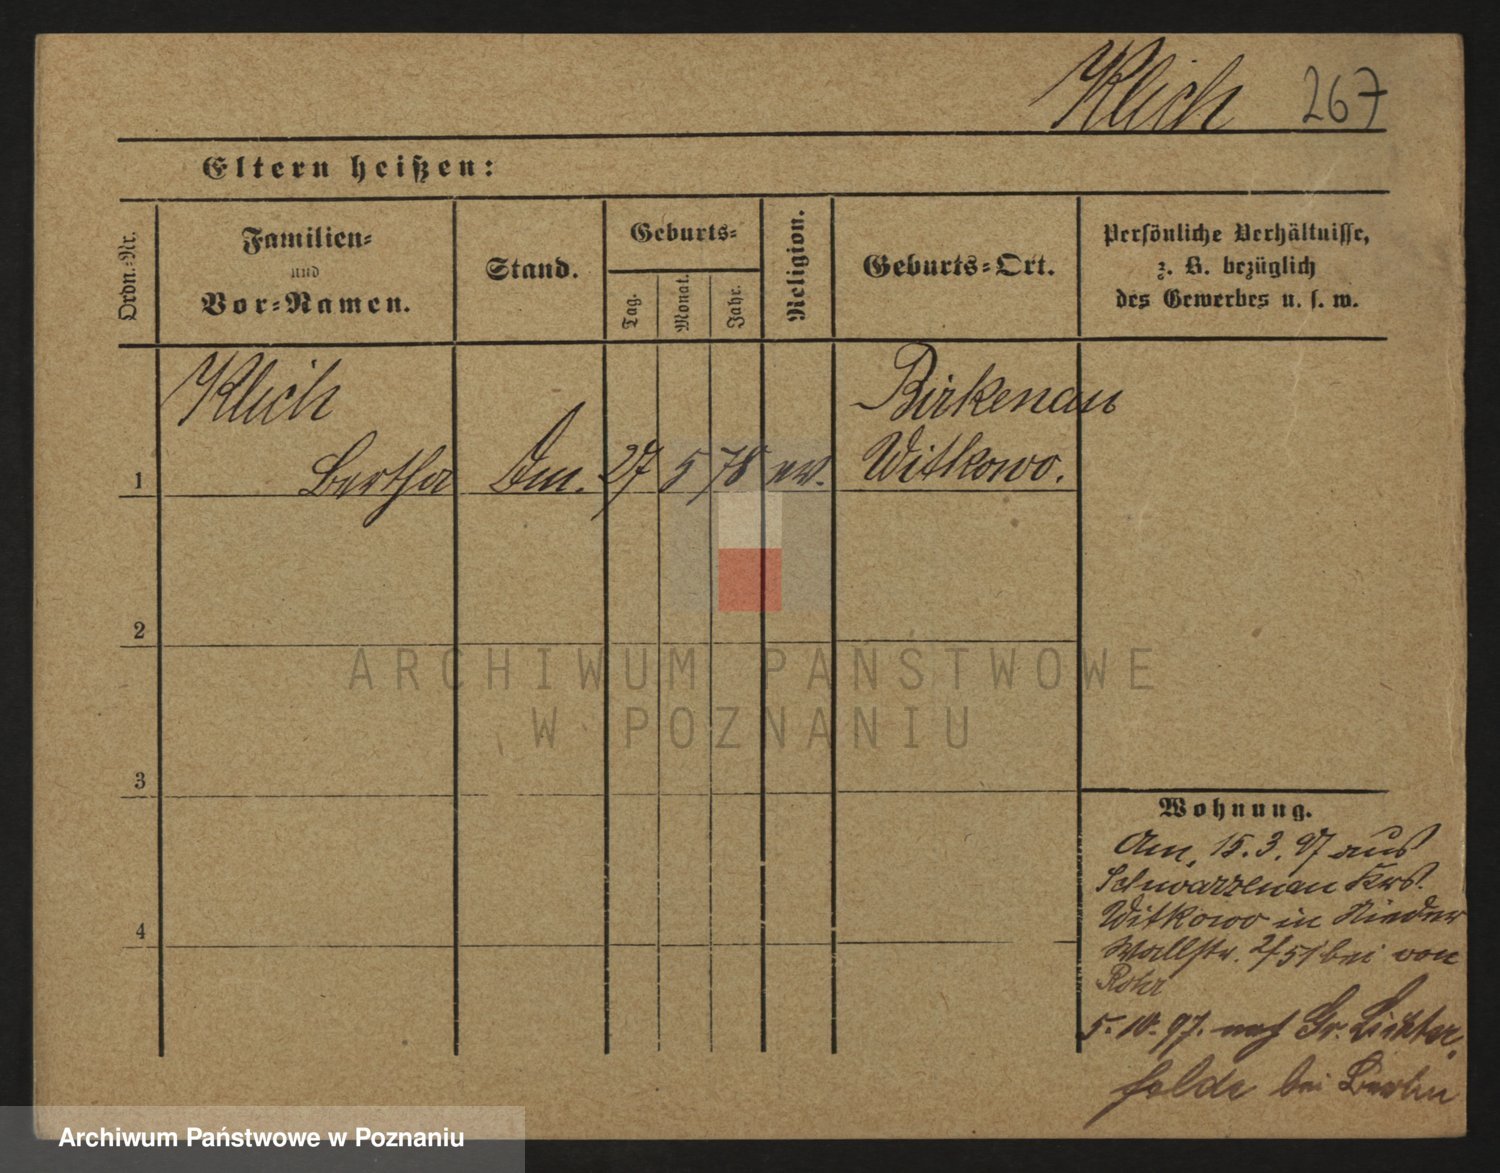 Klich 267
Eltern heißen:
Ordn.-Nr.
Familien-
und
Vor-Namen.
Stand.
Geburts-
Tag.
Monat.
Jahr.
Religion.
Geburts-Ort.
Persönliche Verhältnisse,
z. B. bezüglich
des Gewerbes u. s. w.
Klich
Birkenau
1 Bertha 27 5 78 ev. Witkowo.
2
ARCHIWUM PAŃSTWOWE
W POZNANIU
3
Wohnung.
Am 15.3.97 aus
Schwarzenau Krs.
Witkowo in Nieder
Wallstr. 2/51 bei von
Rohr
4
5.10.97. nach Gr. Lichter-
felde bei Berlin
Archiwum Państwowe w Poznaniu